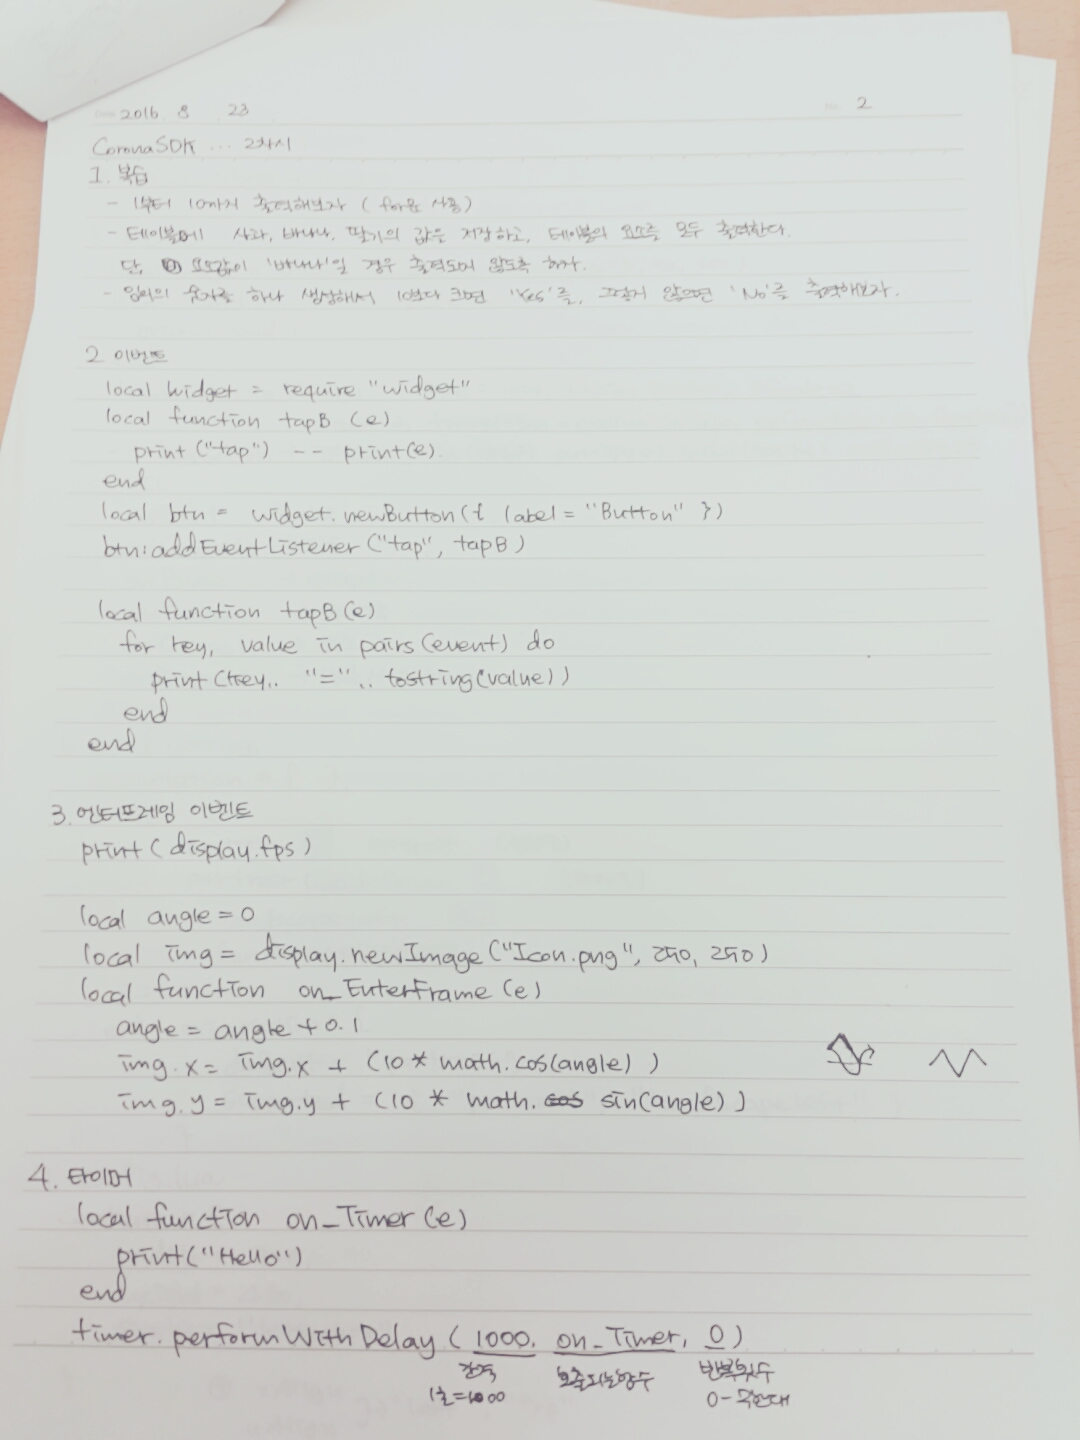 2016 8 23
2
CoronaSDK ... 2차시
1. 복습
- 1부터 10까지 출력해보자 (for문 사용)
- 테이블에 사과, 바나나, 딸기의 값을 저장하고, 테이블의 요소를 모두 출력한다.
단, 요소값이 '바나나'일 경우 출력되지 않도록 하자.
- 임의의 숫자를 하나 생성해서 10보다 크면 'Yes'를, 그렇지 않으면 'No'를 출력해보자.
2 이벤트
local widget = require "widget"
local function tapB (e)
print ("tap") -- print(e).
end
local btn = widget.newButton({ label = "Button" })
btn:addEventListener ("tap", tapB)
local function tapB (e)
for key, value in pairs (event) do
print (key.. "=" .. tostring(value))
end
end
3. 엔터프레임 이벤트
print (display.fps)
local angle = 0
local img = display.newImage ("Icon.png", 250, 250)
local function on_EnterFrame (e)
angle = angle + 0.1
img.x = img.x + (10 * math.cos(angle) )
img.y = img.y + (10 * math. cos sin(angle) )
4. 타이머
local function on_Timer (e)
print("Hello")
end
timer.performWithDelay ( 1000, on_Timer, 0 )
간격 호출되는함수 반복횟수
1초=1000 0-무한대